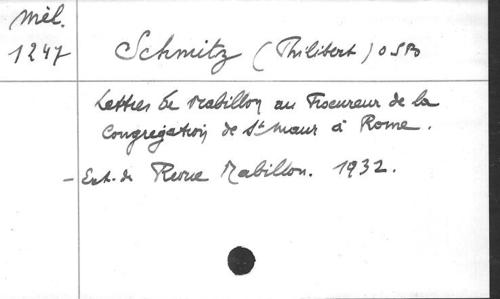 Mél.
1247
Schmitz (Philibert) OSB
Lettres de Mabillon au Procureur de la
Congrégation de St Maur à Rome.
- Ext. de Revue Mabillon. 1932.